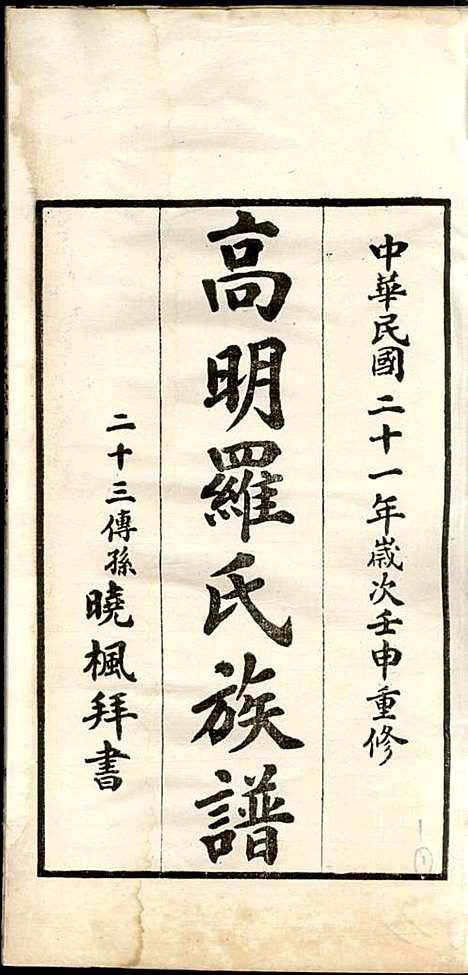 中華民國二十一年歲次壬申重修
高明羅氏族譜
二十三傳孫曉楓拜書
1